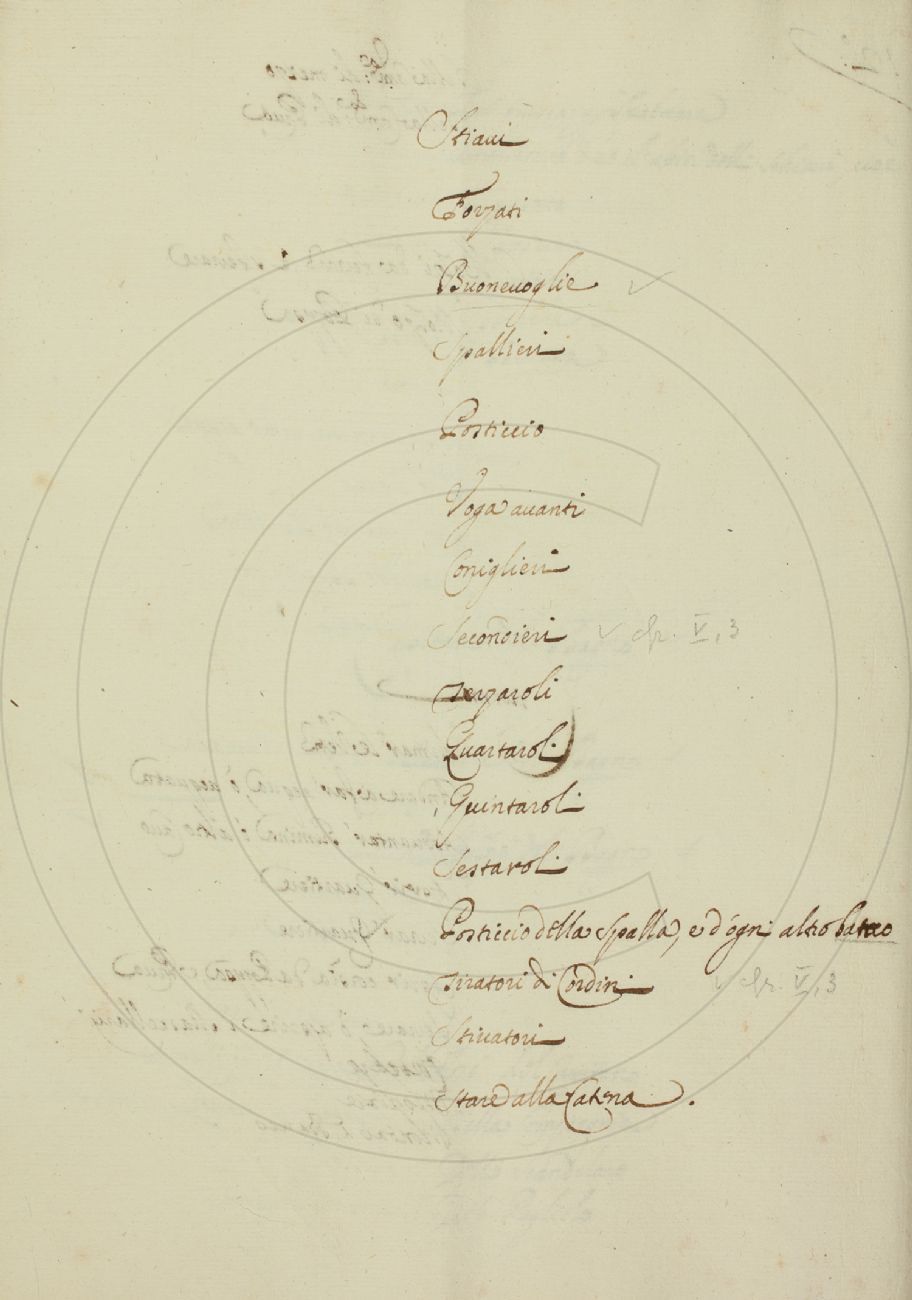 Stiaui
Forzati
Buoneuoglie
Spallieri
Posticcio
Voga auanti
Coniglieri
Secondieri cfr. V, 3
Terzaroli
Quartaroli
Quintaroli
Sestaroli
Posticcio della Spalla, e d'ogni altro
Tiratori di Cordini cfr. V, 3
Stiuatori
Stare alla Catena.